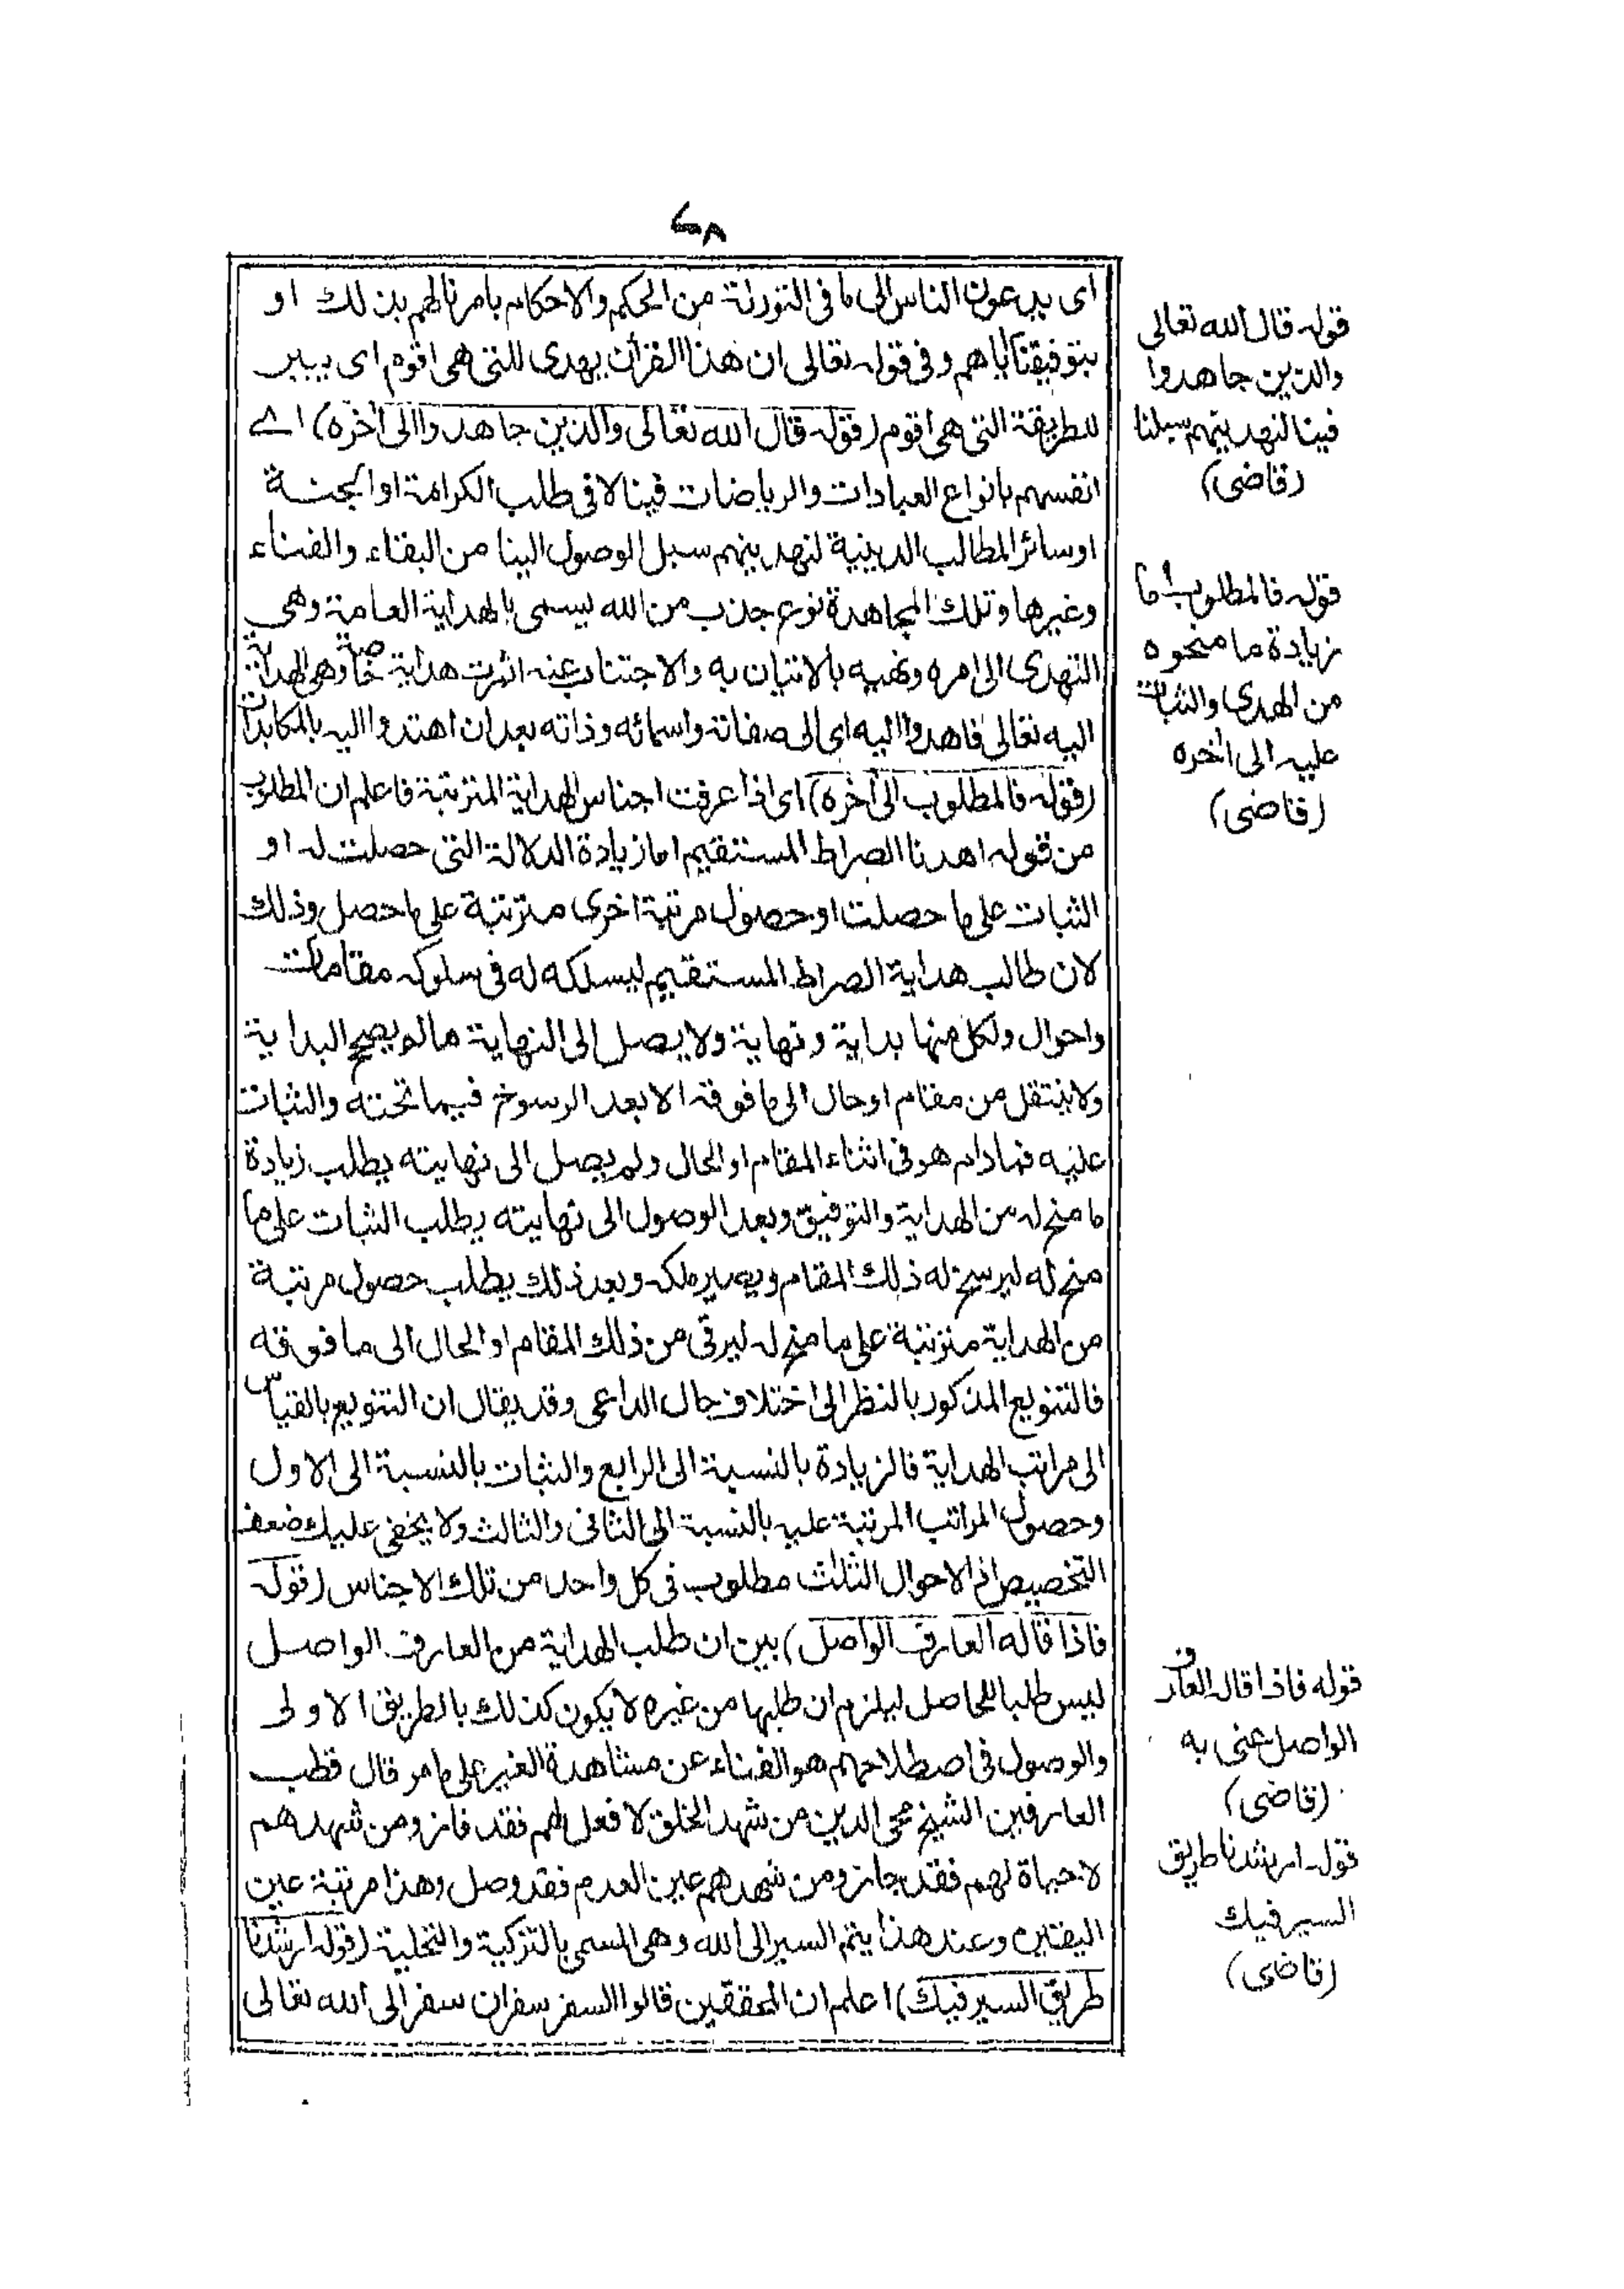 ٦٨
اى يدعون الناس الى ما فى التورىٰة من الحكم والاحكام بامرنا لهم بذلك او
بتوفيقنا اياهم وفى قوله تعالى ان هذا القرأن يهدى للتى هى اقوم اى
للطريقة التى هى اقوم (قوله قال الله تعالى والذين جاهدوا الى أخره) اے
انفسهم بانواع العبادات والرياضات فينا لا فى طلب الكرامة او الجنة
او سائر المطالب الدينية لنهدينهم سبل الوصول الينا من البقاء والفناء
وغيرها وتلك المجاهدة نوع جذب من الله ليسمى بالهداية العامة وهى
التهدى الى امره ونهيه بالاتيان به والاجتناب عنه اثمرت هداية خاصة وهى الهداية
اليه تعالى فاهدوا اليه اى الى صفاته واسمائه وذاته بعد ان اهتدوا اليه بالمكابدات
(قوله فالمطلوب الى أخره) اى اذا عرفت اجناس الهداية المترتبة فاعلم ان المطلوب
من قوله اهدنا الصراط المستقيم اما زيادة الدلالة التى حصلت له او
الثبات على ما حصلت او حصول مرتبة اخرى مترتبة على ما حصل وذلك
لان طالب هداية الصراط المستقيم ليسلكه له فى سلوكه مقامات
واحوال ولكل منها بداية ونهاية ولا يصل الى النهاية مالم يصحح البداية
ولا ينتقل من مقام او حال الى ما فوقه الا بعد الرسوخ فيما تحته والثبات
عليه فمادام هو فى اثناء المقام او الحال ولم يصل الى نهايته يطلب زيادة
ما منح له من الهداية والتوفيق وبعد الوصول الى نهايته يطلب الثبات على ما
منح له ليرسخ له ذلك المقام ويصير ملكه وبعد ذلك يطلب حصول مرتبة
من الهداية مترتبة على ما منح له ليرقى من ذلك المقام او الحال الى ما فوقه
فالتنويع المذكور بالنظر الى اختلاف حال الداعى وقد يقال ان التنويع بالقياس
الى مراتب الهداية فالزيادة بالنسبة الى الرابع والثبات بالنسبة الى الاول
وحصول المراتب المرتبة عليه بالنسبة الى الثانى والثالث ولا يخفى عليك ضعف
التخصيص اذ الاحوال الثلث مطلوب فى كل واحد من تلك الاجناس (قوله
فاذا قاله العارف الواصل) بين ان طلب الهداية من العارف الواصل
ليس طلبا للحاصل ليلزم ان طلبها من غيره لا يكون كذلك بالطريق الاولى
والوصول فى اصطلاحهم هو الفناء عن مشاهدة الغير على ما مر قال قطب
العارفين الشيخ محى الدين من شهد الخلق لا فعل لهم فقد فاز ومن شهدهم
لا حياة لهم فقد جاز ومن شهدهم عين العدم فقد وصل وهذا مرتبة عين
اليقين وعند هذا يتم السير الى الله وهى المسمى بالتزكية والتخلية (قوله ارشدنا
طريق السير فيك) اعلم ان المحققين قالوا السفر سفران سفر الى الله تعالى
قوله قال الله تعالى
والذين جاهدوا
فينا لنهدينهم سبلنا
(قاضى)
قوله فالمطلوب اما
زيادة ما منحوه
من الهدى والثبات
عليه الى أخره
(قاضى)
قوله فاذا قاله العارف
الواصل عنى به
(قاضى)
قوله ارشدنا طريق
السير فيك
(قاضى)